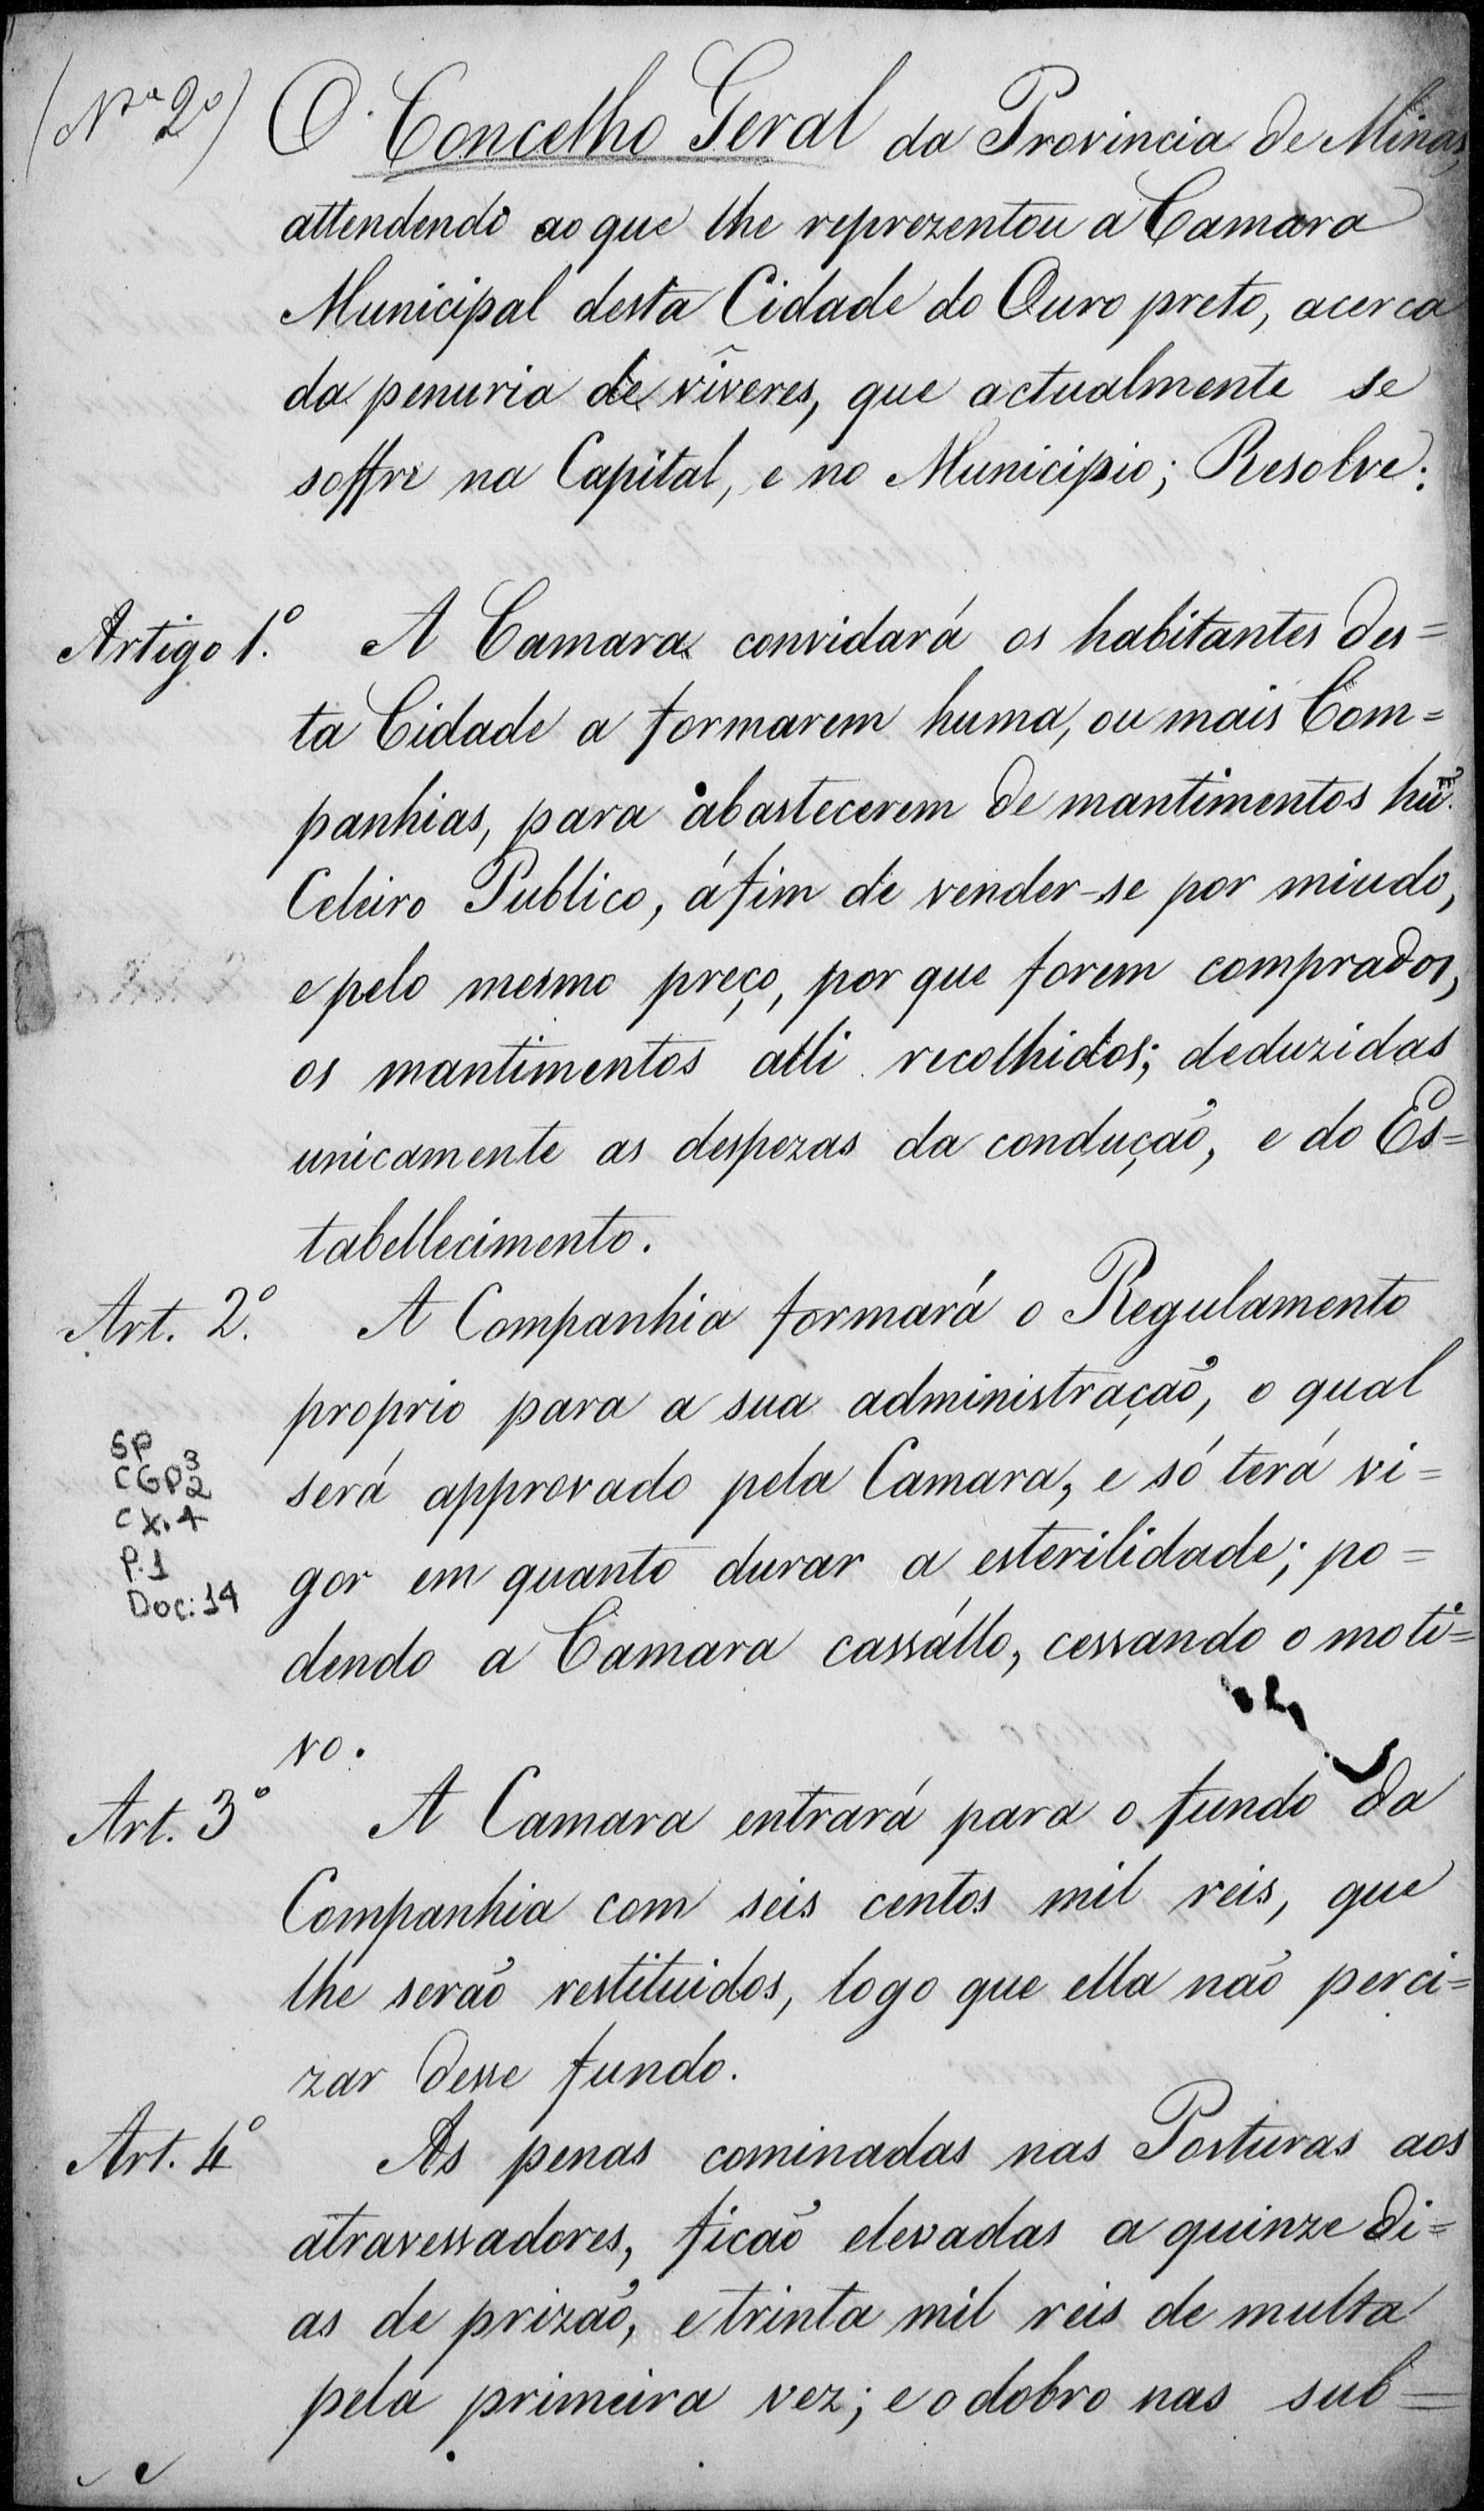 (Nº 2º) O Concelho Geral da Provincia de Minas,
attendendo ao que lhe reprezentou a Camara
Municipal desta Cidade do Ouro preto, acerca
da penuria de viveres, que actualmente se
soffre na Capital, e no Municipio; Resolve:
Artigo 1º. A Camara convidará os habitantes des=
ta Cidade a formarem huma, ou mais Com=
panhias, para abastecerem de mantimentos hũ
Celeiro Publico, áfim de vender-se por miudo,
e pelo mesmo preço, por que forem comprados,
os mantimentos alli recolhidos; deduzidas
unicamente as despezas da condução, e do Es=
tabellecimento.
Art. 2º. A Companhia formará o Regulamento
proprio para a sua administração, o qual
será approvado pela Camara, e só terá vi=
gor em quanto durar a esterilidade; po=
dendo a Camara cassállo, cessando o moti=
vo.
SP
CGP 3 2
CX. 4
P. 1
Doc: 14
Art. 3º A Camara entrará para o fundo da
Companhia com seis centos mil reis, que
lhe serão restituidos, logo que ella não perci=
zar desse fundo.
Art. 4º As penas cominadas nas Posturas aos
atravessadores, ficão elevadas a quinze di=
as de prizão, e trinta mil reis de multa
pela primeira vez; e o dobro nas sub=